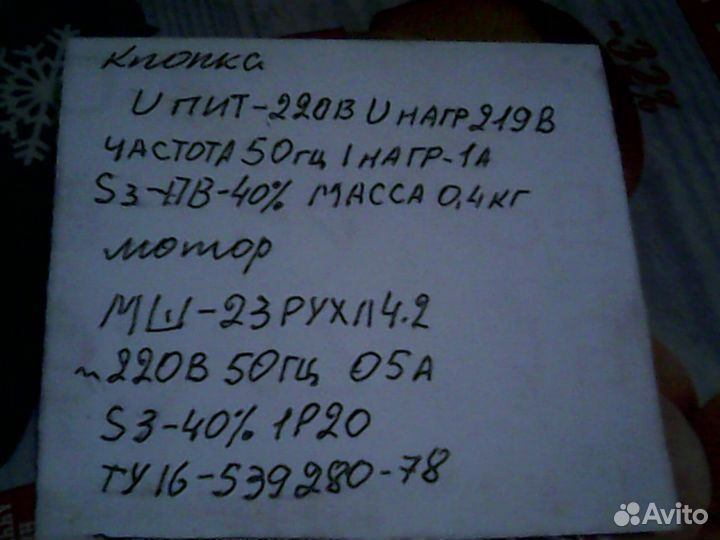 кнопка
U ПИТ-220В U НАГР 219В
ЧАСТОТА 50ГЦ I НАГР-1А
S3-ПВ-40% МАССА 0,4КГ
мотор
МШ-23РУХЛ4.2
~220В 50ГЦ 05А
S3-40% IP20
ТУ16-539280-78
Avito